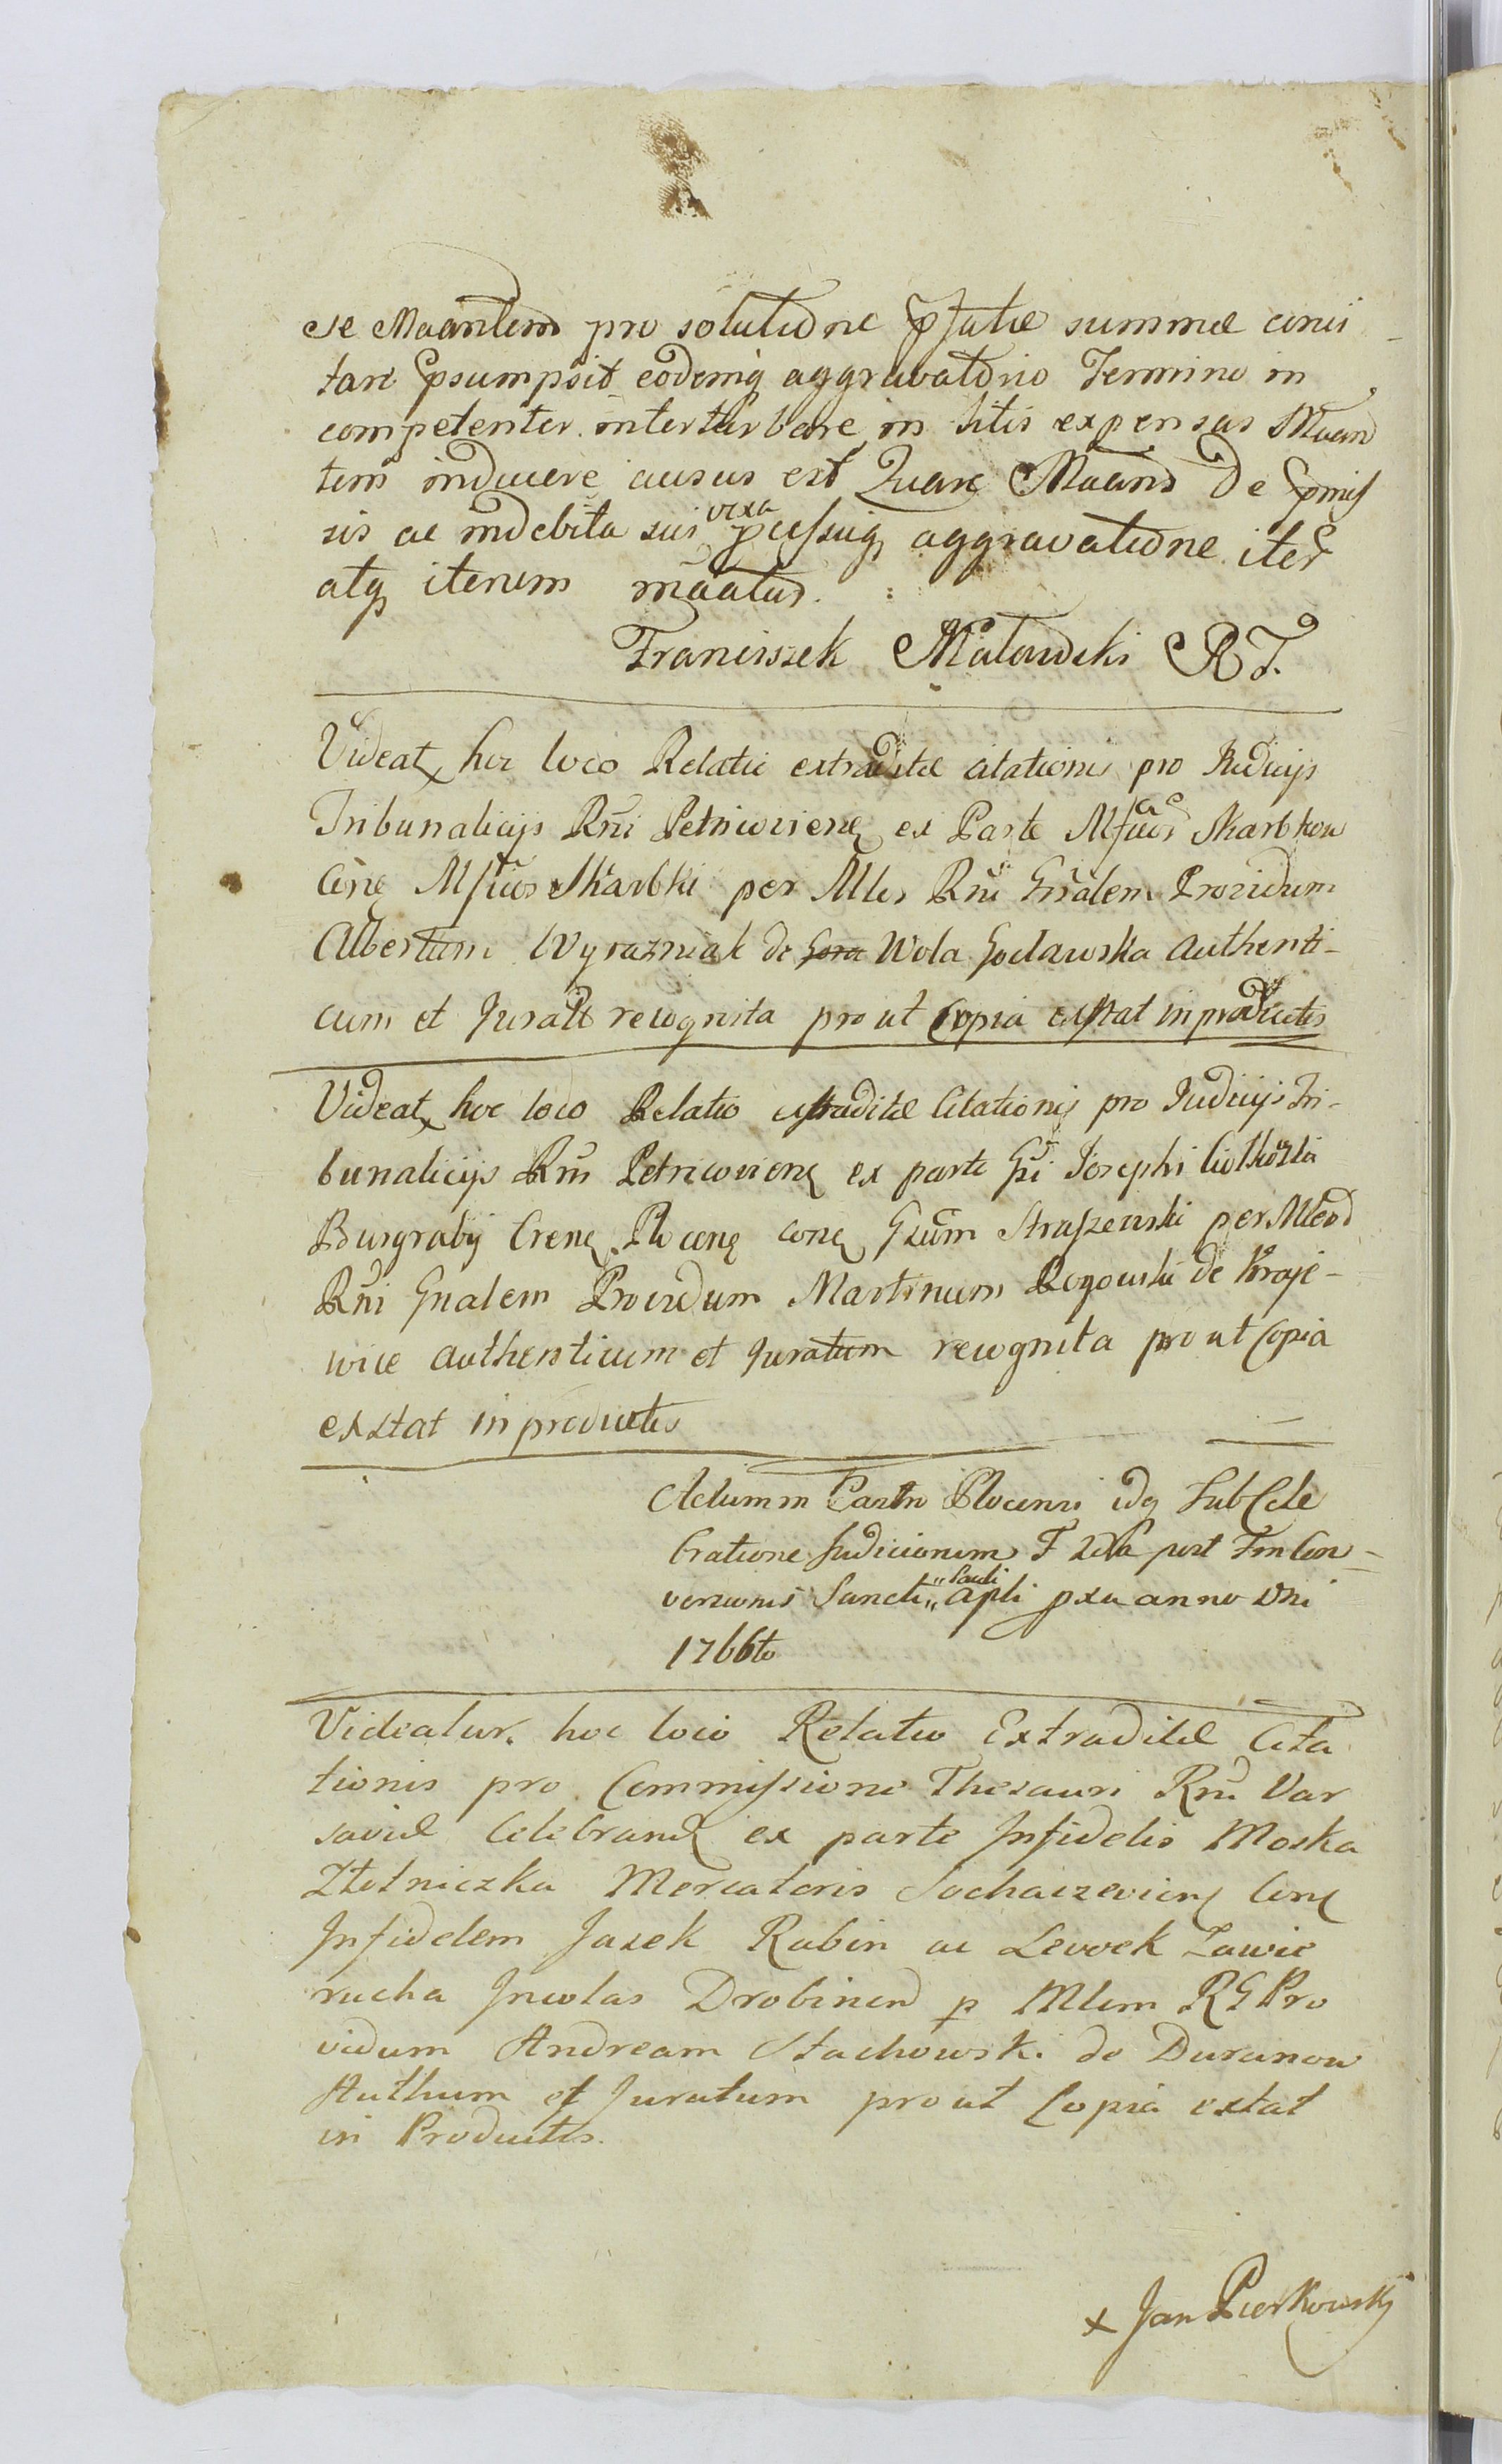 se Maantem pro solutione pfatæ summæ conci
tare psumpsit eodemq aggravatorio Termino in
competenter inter turbare in litis expensas Maan
tem inducere ausus est Quare Maans De pmis
sis ac indebita sui vexa pcussuiq aggravatione iter
atq iterum maatur.
Franciszek Matowski RT.
Videat hoc loco Relatio extraditæ citationis pro Judicijs
Tribunalicijs Rni Petricovien ex Parte Mfcae Skarbkow
Con Mfcos Skarbki per Mles Rni Gnalem Providum
Albertum Wyrazniak de Gora Wola Goclawska Authenti-
cum et Jurat recognita prout Copia exstat in productis
Videat hoc loco Relatio extraditæ Citationis pro Judicijs Tri-
bunalicijs Rni Petricovien ex parte Gsi Josephi Ciolkoski
Burgrabij Cren Plocen con Gsum Straszewski per Mlem
Rni Gnalem Providum Martinum Rogowski de Kraje-
wice authenticum et Juratum recognita prout Copia
exstat in productis
Actum in Castro Plocensi idq Sub Cele
bratione Judiciorum F 2da post Fm Con-
versionis Sancti Pauli Apli pxa anno Dni
1766to
Videatur hoc loco Relatio Extraditæ Cita
tionis pro Commissione Thesauri Rni Var
saviæ Celebran ex parte Infidelis Moska
Złotniczka Mercatoris Sochaczevien Con
Infidelem Jasek Rabin ac Levek Zawie
rucha Incolas Drobinen p Mlem RG Pro
vidum Andream Stachowski de Duranow
Authum et Juratum prout Copia extat
in Productis.
x Jan Pierkowskj